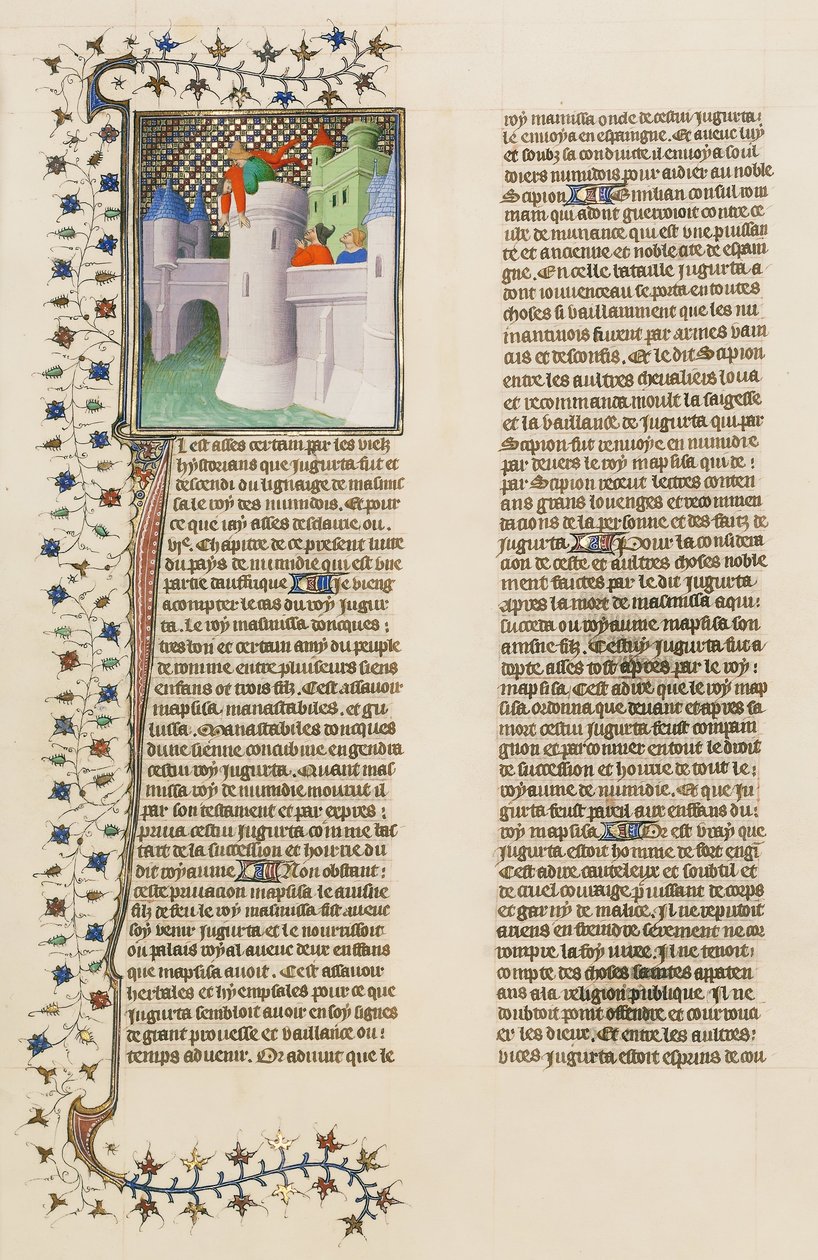 Il est asses certain par les vielz
hystorians que Jugurta fut et
descendi du lignaige de masinis
sa le roy des numidois. Et pour
ce que iay asses desclairie ou.
vie. Chapitre de ce present liure
du pays de numidie qui est vne
partie dauffrique Je vieng
acompter le cas du roy Jugur
ta. Le roy masinissa doncques:
tres bon et certain amy du peuple
de romme entre pluiseurs siens
enfans ot trois filz. Cest assauoir
mapsisa manastabiles. et gu
lussa. Manastabiles doncques
dune sienne concubine engendra
cestui roy Jugurta. Quant mas
nissa roy de numidie mourut il
par son testament et par expres:
priua cestui Jugurta comme bas
tart de la succession et hoirie du
dit royaume Non obstant:
ceste priuacion mapsisa le aisne
filz de feu le roy masinissa fist auec
soy venir Jugurta et le nourrissoit
ou palais royal auec deux enffans
que mapsisa auoit. Cest assauoir
herbales et hyempsales pour ce que
Jugurta sembloit auoir en soy signes
de grant prouesse et vaillance ou:
temps aduenir. Or aduint que le
roy manissa onde de cestui Jugurta:
le enuoya en espaingne. Et auec luy
et soubz sa conduicte il enuoya soul
doiers numidois pour aidier au noble
Scipion Emilian consul rom
main qui adont guerroioit contre ce
de numance qui est vne puissan
te et ancienne et noble cite de espain
gne. En celle bataille Jugurta a
dont iouuenceau se porta en toutes
choses si vaillamment que les nu
mantinois furent par armes vain
cus et desconfis. Et le dit Scipion
entre les aultres cheualiers loua
et recommanda moult la saigesse
et la vaillance de Jugurta qui par
Scipion fut renuoye en numidie
par deuers le roy mapsisa qui de:
par Scipion receut lectres conten
ans grans louenges et recommen
dacions de la personne et des faitz de
Jugurta Pour la considera
cion de ceste et aultres choses noble
ment faictes par le dit Jugurta
apres la mort de masinissa a qui:
succeda ou royaume mapsisa son
aisne filz. Cestuy Jugurta fut a
dopte asses tost apres par le roy:
mapsisa. Cest adire que le roy map
sisa ordonna que deuant et apres sa
mort cestui Jugurta feust compain
gnon et parconnier en tout le droit
de succession et hoirie de tout le:
royaume de numidie. Et que Ju
gurta feust pareil aux enffans du:
roy mapsisa Or est vray que
Jugurta estoit homme de fort engi
Cest adire cauteleux et soubtil et
de cruel couraige puissant de corps
et garny de malice. Il ne reputoit
a riens enfreindre serement ne cor
rompre la foy iuree. Il ne tenoit:
compte des choses saintes apparten
ans a la religion publique Il ne
doubtoit point offendre et courrouc
er les dieux. Et entre les aultres:
vices Jugurta estoit esprins de cou